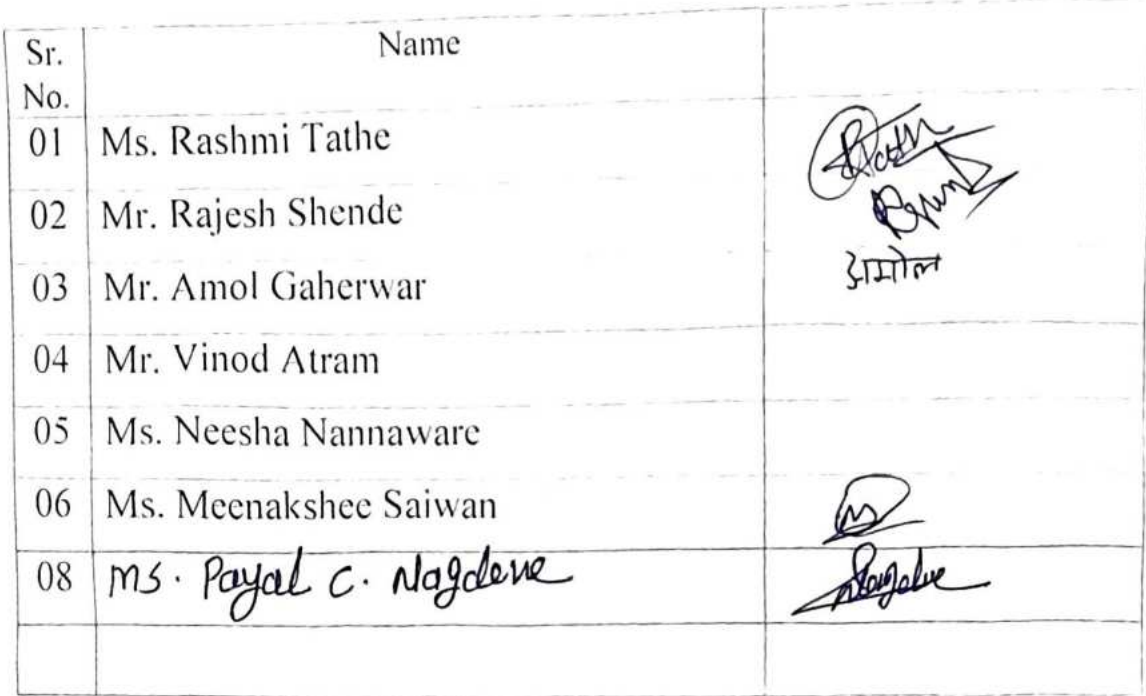 Sr. No. Name
01 Ms. Rashmi Tathe
02 Mr. Rajesh Shende
03 Mr. Amol Gaherwar अामोल
04 Mr. Vinod Atram
05 Ms. Neesha Nannaware
06 Ms. Meenakshee Saiwan
08 Ms. Payal C. Nagdeve